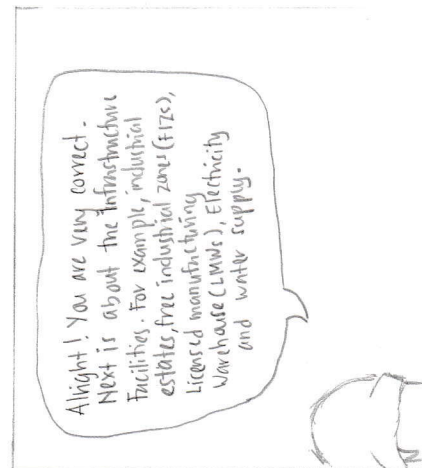 Alright! You are very correct.
Next is about the Infrastructure
Facilities. For example, industrial
estates, free industrial zones (FIZs),
Licensed manufacturing
Warehouse (LMWs), Electricity
and water supply.